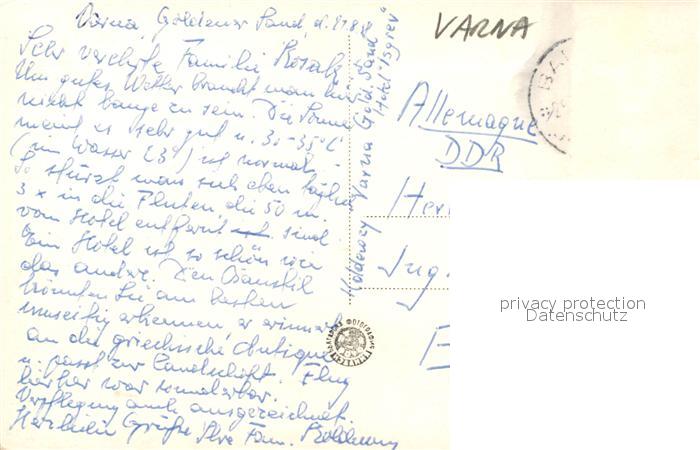 Varna, Goldener Sand, d.
Sehr verehrte Familie
Um gutes Wetter braucht man hier
nicht bange zu sein. Die Sonne
meint es sehr gut u. 30-35°C
(im Wasser 23°) ist normal.
So stürzt man sich eben täglich
3 x in die Fluten, die 50 m
vom Hotel entfernt sind.
Ein Hotel ist so schön wie
das andere. Den Baustil
könnten Sie am besten
erkennen, er erinnert
an die griechische Antique
u. passt zur Landschaft. Flug
hierher war wunderbar.
Verpflegung auch ausgezeichnet.
Herzliche Grüße Ihre Fam.
Varna Gold. Sand
Hotel "Isgrev"
VARNA
Allemagne
DDR
Her
Ing.
privacy protection
Datenschutz